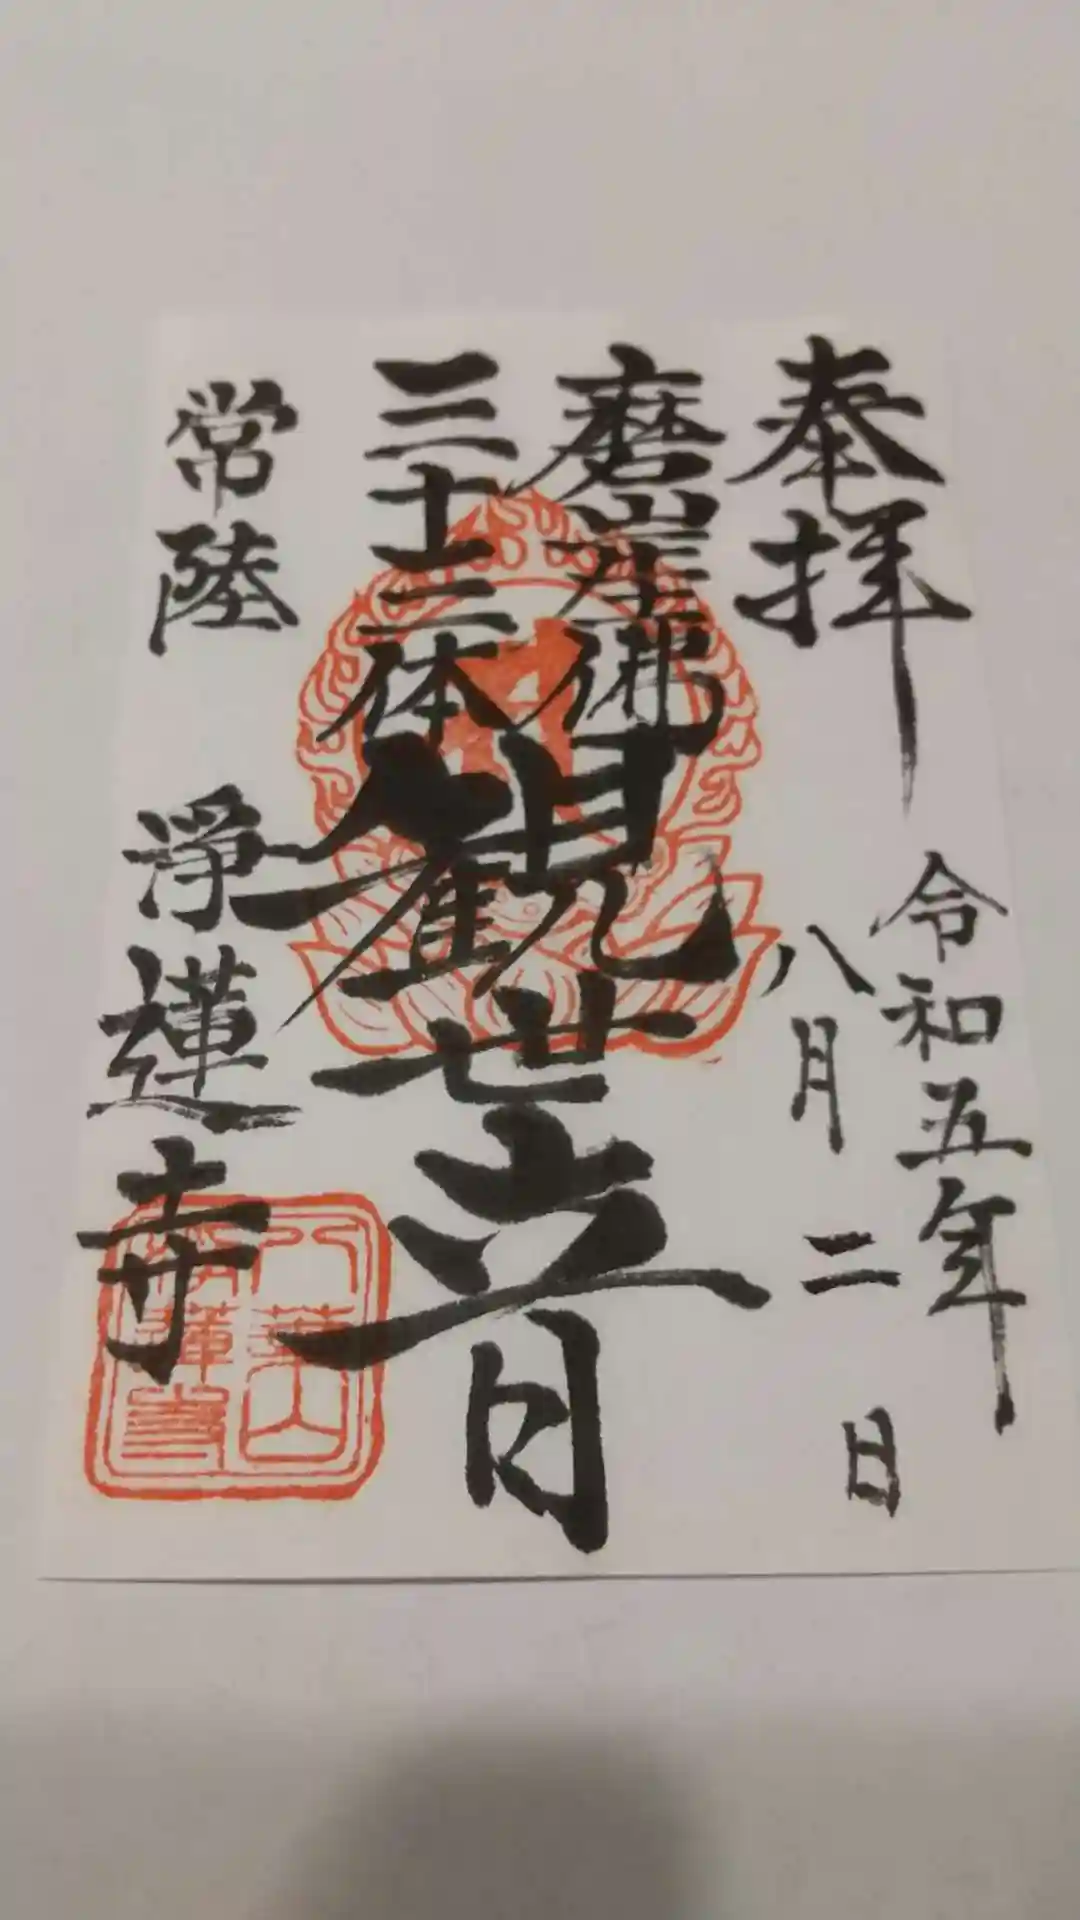 奉拝
令和五年
八月二日
磨崖佛
三十三体
観世音
常陸 浄蓮寺